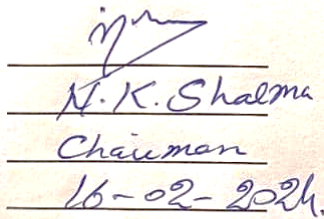 N. K. Sharma
Chairman
16-02-2024.